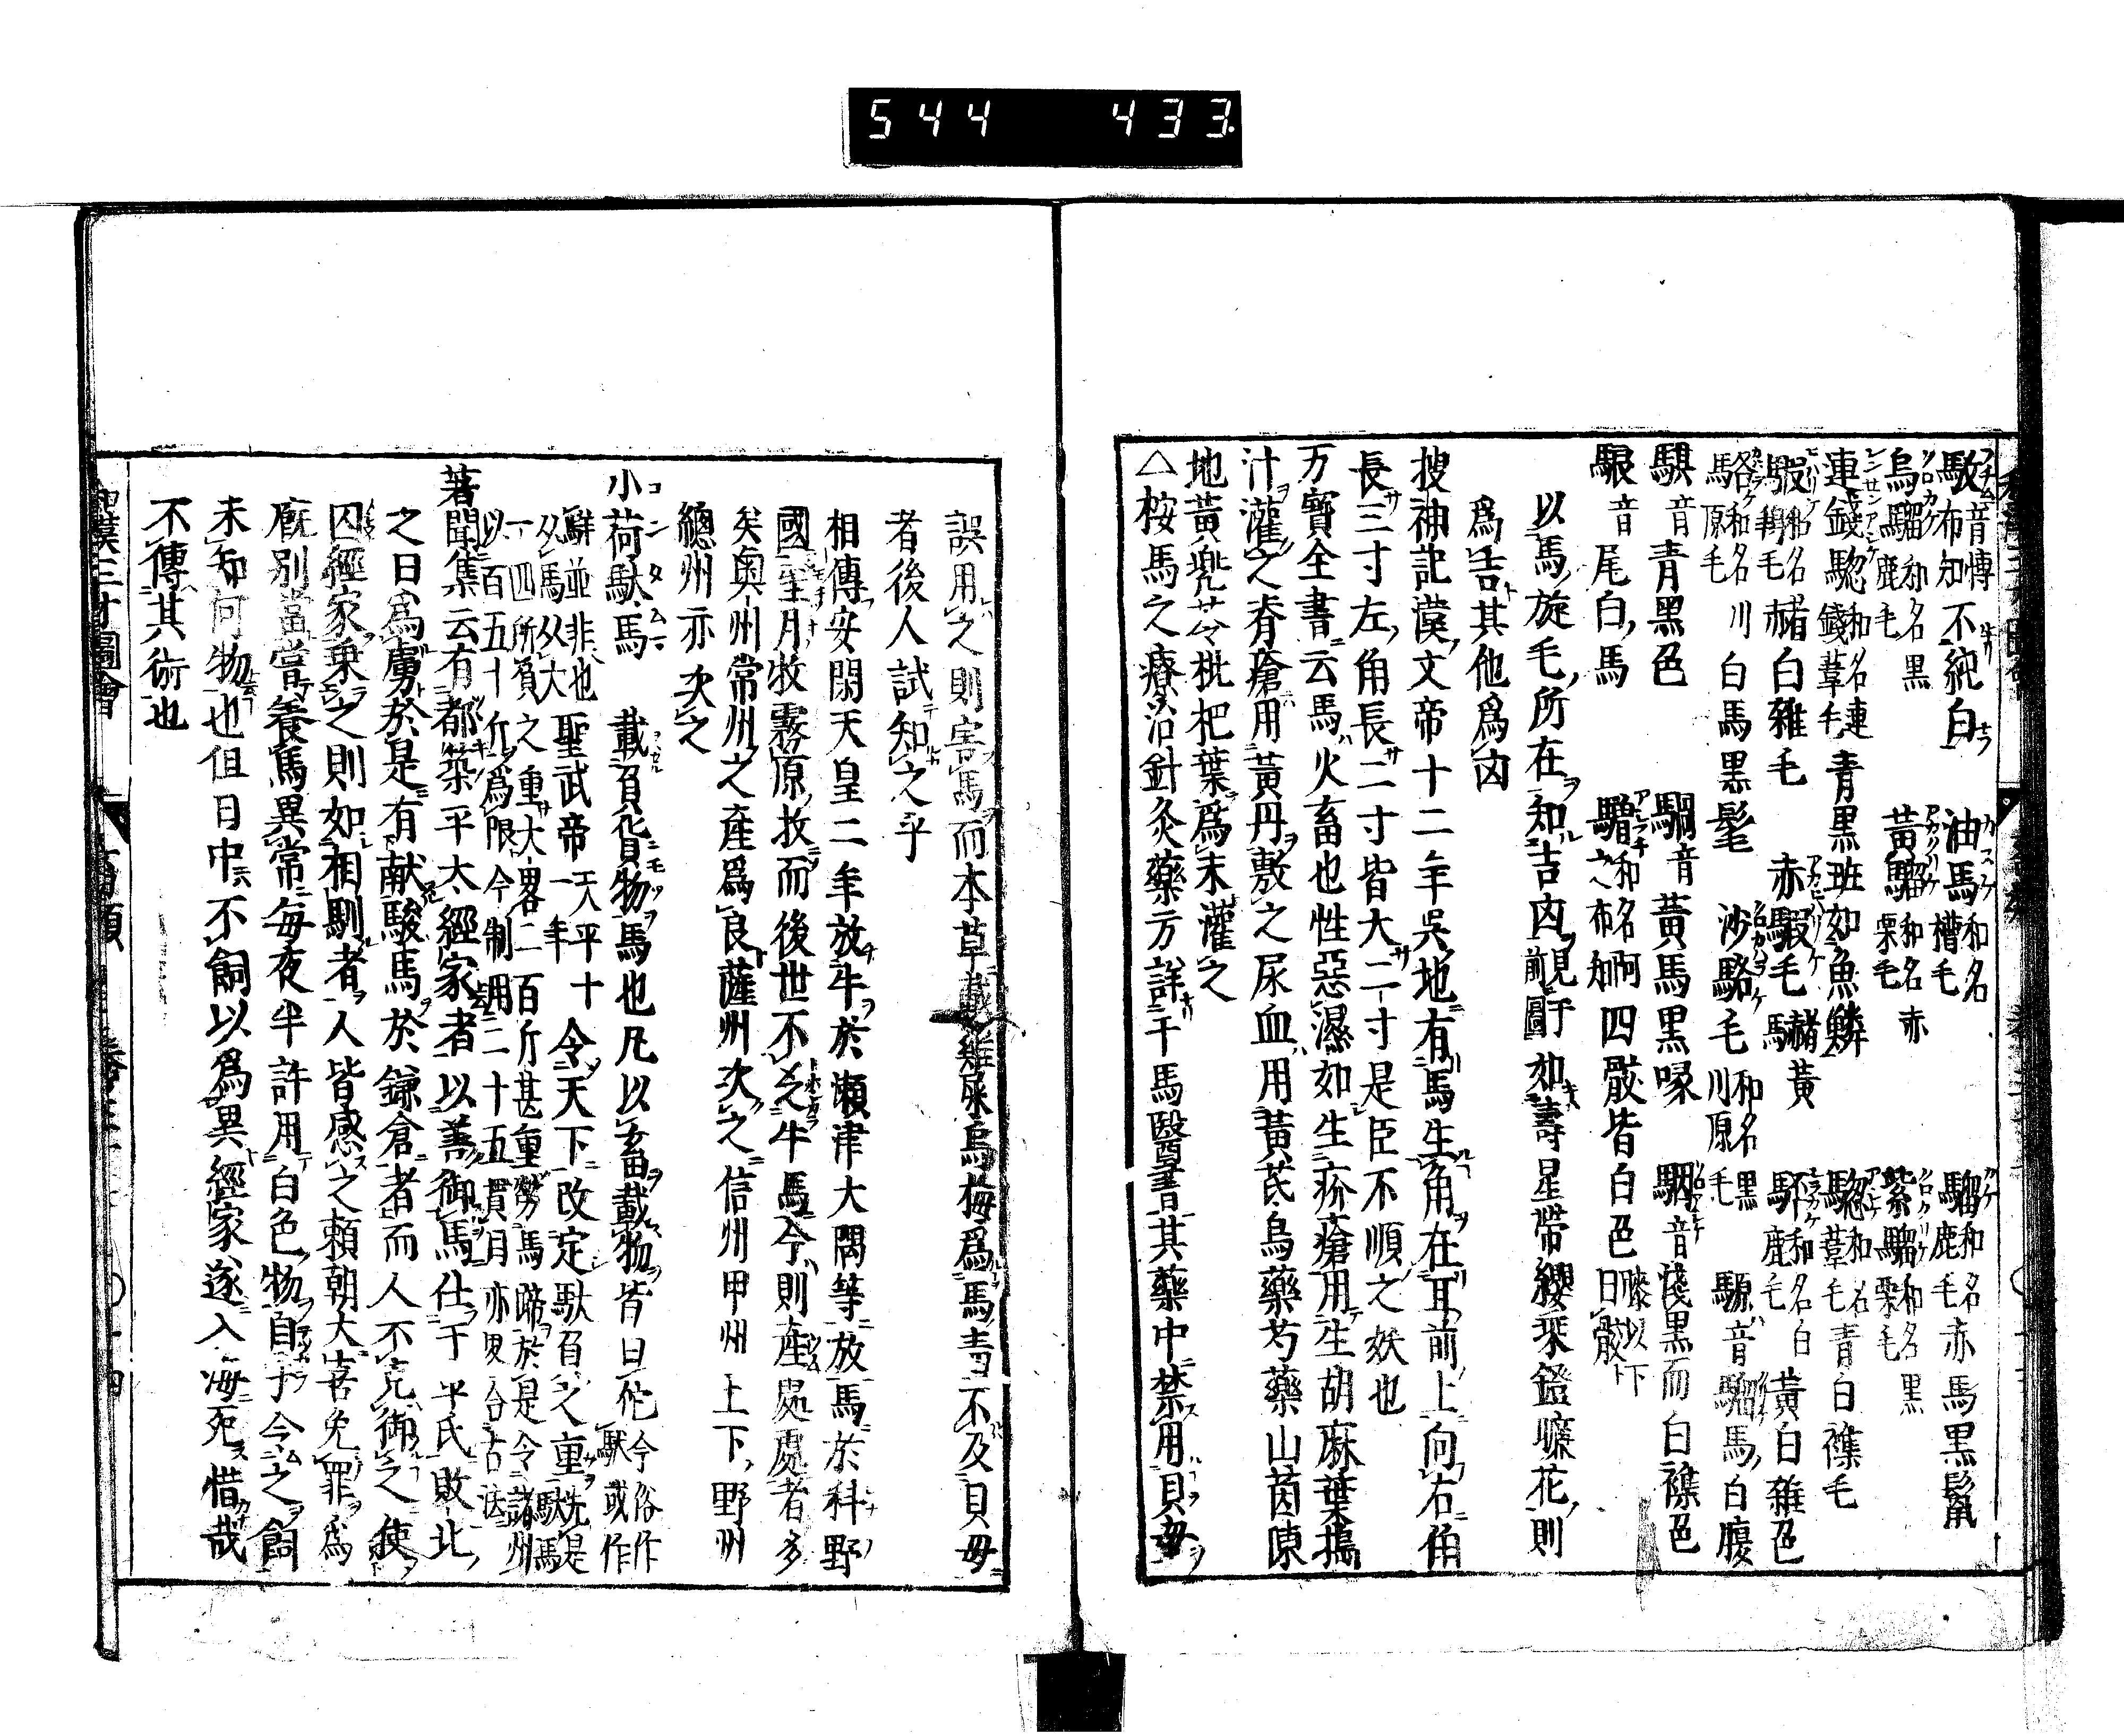 544 433
駁音博 布知 不純白 油馬和名糟毛 騮和名鹿毛 赤馬黒鬣
烏騮和名黒鹿毛 黃騮和名赤栗毛 紫騮和名黒栗毛
連錢驄和名連錢葦毛 青黒斑如魚鱗 驄和名葦毛 青白襍毛
騢和名鶬毛 赭白雜毛 赤騢毛 赭黃馬 駓和名白鹿毛 黃白雜色
駱和名川原毛 白馬黒髦 沙駱毛和名黒川原毛 騵音 騮馬白腹
騏音 青黒色 騧音 黃馬黒喙 駰音 淺黒而白襍色
騴音 尾白馬 騽和名阿之布知 四骹皆白色 膝以下曰骹
以馬旋毛所在知吉凶見于前圖如壽星帶纓乘鐙嚥花則
爲吉其他爲凶
搜神記漢文帝十二年吳地有馬生角在耳前上向右角
長三寸左角長二寸皆大二寸是臣不順之妖也
万寶全書云馬火畜也性惡濕如生疥瘡用生胡麻葉搗
汁灌之脊瘡用黃丹敷之尿血用黃芪烏藥芍藥山茵陳
地黃兜苓枇杷葉爲末灌之
△桉馬之療治針灸藥方詳于馬醫書其藥中禁用貝母
誤用之則害馬而本草載雖尿烏梅爲馬毒不及貝母
者後人試知之乎
相傳安閑天皇二年放牛於瀬津大隅等放馬於科野
國望月牧霧原牧而後世不乏牛馬今則產處處者多
矣奥州常州之産爲良薩州次之信州甲州上下野州
總州亦次之
小荷馱馬 載負貨物馬也凡以畜載物皆曰佗今俗作馱或作
觧並非也 从馬从大 聖武帝天平十一年令天下改定馱負之重先是馱馬
一四所負之重大畧二百斤甚重勞馬蹄於是令諸州
以百五十斤爲限今制用二十五貫目亦畧合古法
著聞集云有都築平太經家者以善御馬仕于平氏敗北
之日爲虜於是有献駿馬於鎌倉者而人不克御之使
囚經家乗之則如相馴者人皆感之頼朝大喜免罪爲
廐別當當養馬異常毎夜半許用白色物自手令之飼
未知何物也但日中不飼以爲異經家遂入海死惜哉
不傳其術也